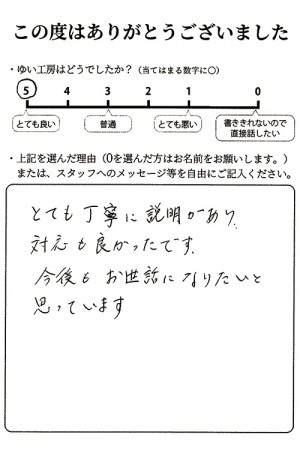 この度はありがとうございました
・ゆい工房はどうでしたか？（当てはまる数字に○）
5 4 3 2 1 0
とても良い 普通 とても悪い 書ききれないので
直接話したい
・上記を選んだ理由（0を選んだ方はお名前をお願いします。）
または、スタッフへのメッセージ等を自由にご記入ください。
とても丁寧に説明があり、
対応も良かったです。
今後も お世話になりたいと
思っています